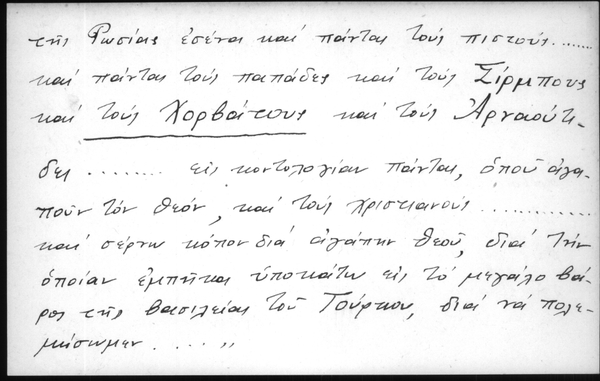 τῆς Ρωσίας ἐσένα καί πάντας τούς πιστούς ........
καί πάντας τούς παπάδες καί τούς Σίρμπους
καί τούς Χορβάτους καί τούς Ἀρναούτι-
δες ........ εἰς κοντολογίαν πάντας, ὁποῦ ἀγα-
ποῦν τόν θεόν, καί τούς χριστιανούς ............
καί σέρνω κόπον διά ἀγάπην θεοῦ, διά τήν
ὁποίαν ἐμπῆκα ὑποκάτω εἰς τό μεγάλο βά-
ρος τῆς βασιλείας τοῦ Τούρκου, διά νά πολε-
μήσωμεν . . . . "